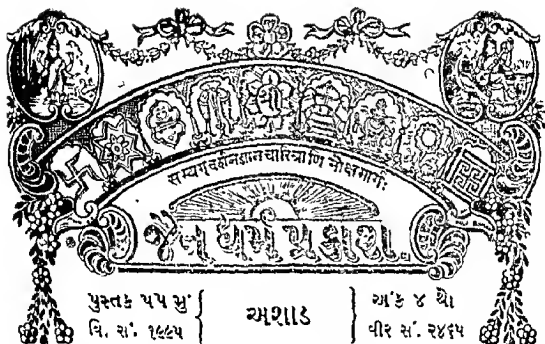 सम्यग्दर्शनज्ञानचारित्राणि मोक्षमार्गः
જૈન ધર્મ પ્રકાશ.
પુસ્તક ૫૫ મું
વિ. સં. ૧૯૯૫
અશાડ
અંક ૪ થો
વીર સં. ૨૪૬૫